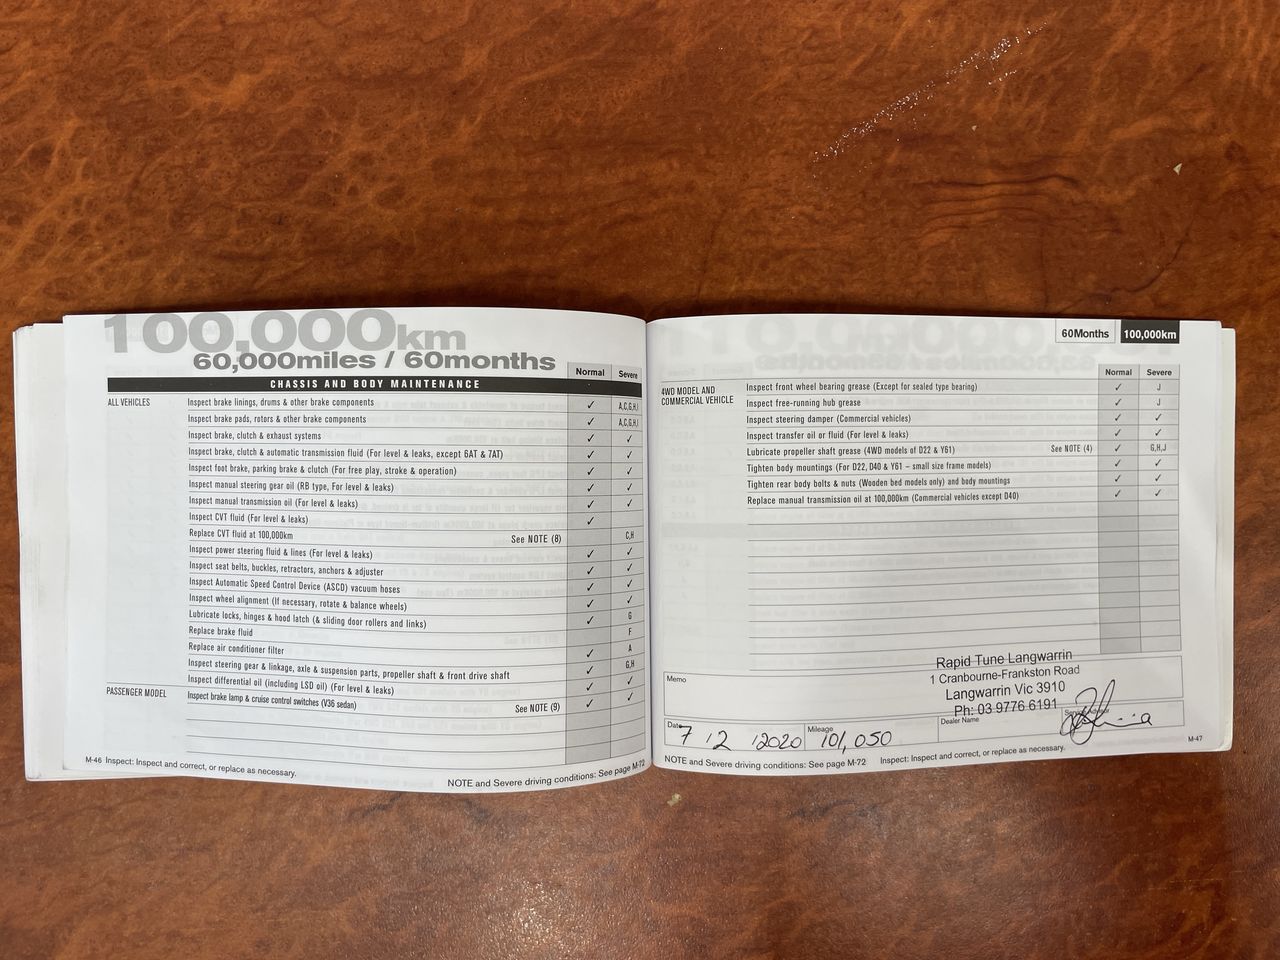 100,000km
60,000miles / 60months
Normal Severe
CHASSIS AND BODY MAINTENANCE
ALL VEHICLES Inspect brake linings, drums & other brake components ✓ A,C,G,H,I
Inspect brake pads, rotors & other brake components ✓ A,C,G,H,I
Inspect brake, clutch & exhaust systems ✓ ✓
Inspect brake, clutch & automatic transmission fluid (For level & leaks, except 6AT & 7AT) ✓ ✓
Inspect foot brake, parking brake & clutch (For free play, stroke & operation) ✓ ✓
Inspect manual steering gear oil (RB type, For level & leaks) ✓ ✓
Inspect manual transmission oil (For level & leaks) ✓ ✓
Inspect CVT fluid (For level & leaks) ✓
Replace CVT fluid at 100,000km See NOTE (8) C,H
Inspect power steering fluid & lines (For level & leaks) ✓ ✓
Inspect seat belts, buckles, retractors, anchors & adjuster ✓ ✓
Inspect Automatic Speed Control Device (ASCD) vacuum hoses ✓ ✓
Inspect wheel alignment (If necessary, rotate & balance wheels) ✓ ✓
Lubricate locks, hinges & hood latch (& sliding door rollers and links) ✓ G
Replace brake fluid F
Replace air conditioner filter ✓ A
Inspect steering gear & linkage, axle & suspension parts, propeller shaft & front drive shaft ✓ G,H
Inspect differential oil (including LSD oil) (For level & leaks) ✓ ✓
PASSENGER MODEL Inspect brake lamp & cruise control switches (V36 sedan) See NOTE (9) ✓ ✓
M-46 Inspect: Inspect and correct, or replace as necessary.
NOTE and Severe driving conditions: See page M-72
60Months 100,000km
Normal Severe
4WD MODEL AND COMMERCIAL VEHICLE Inspect front wheel bearing grease (Except for sealed type bearing) ✓ J
Inspect free-running hub grease ✓ J
Inspect steering damper (Commercial vehicles) ✓ ✓
Inspect transfer oil or fluid (For level & leaks) ✓ ✓
Lubricate propeller shaft grease (4WD models of D22 & Y61) See NOTE (4) ✓ G,H,J
Tighten body mountings (For D22, D40 & Y61 – small size frame models) ✓ ✓
Tighten rear body bolts & nuts (Wooden bed models only) and body mountings ✓ ✓
Replace manual transmission oil at 100,000km (Commercial vehicles except D40) ✓ ✓
Memo
Rapid Tune Langwarrin
1 Cranbourne-Frankston Road
Langwarrin Vic 3910
Ph: 03 9776 6191
Date 7 12 2020 Mileage 101,050 Dealer Name
NOTE and Severe driving conditions: See page M-72 Inspect: Inspect and correct, or replace as necessary.
M-47